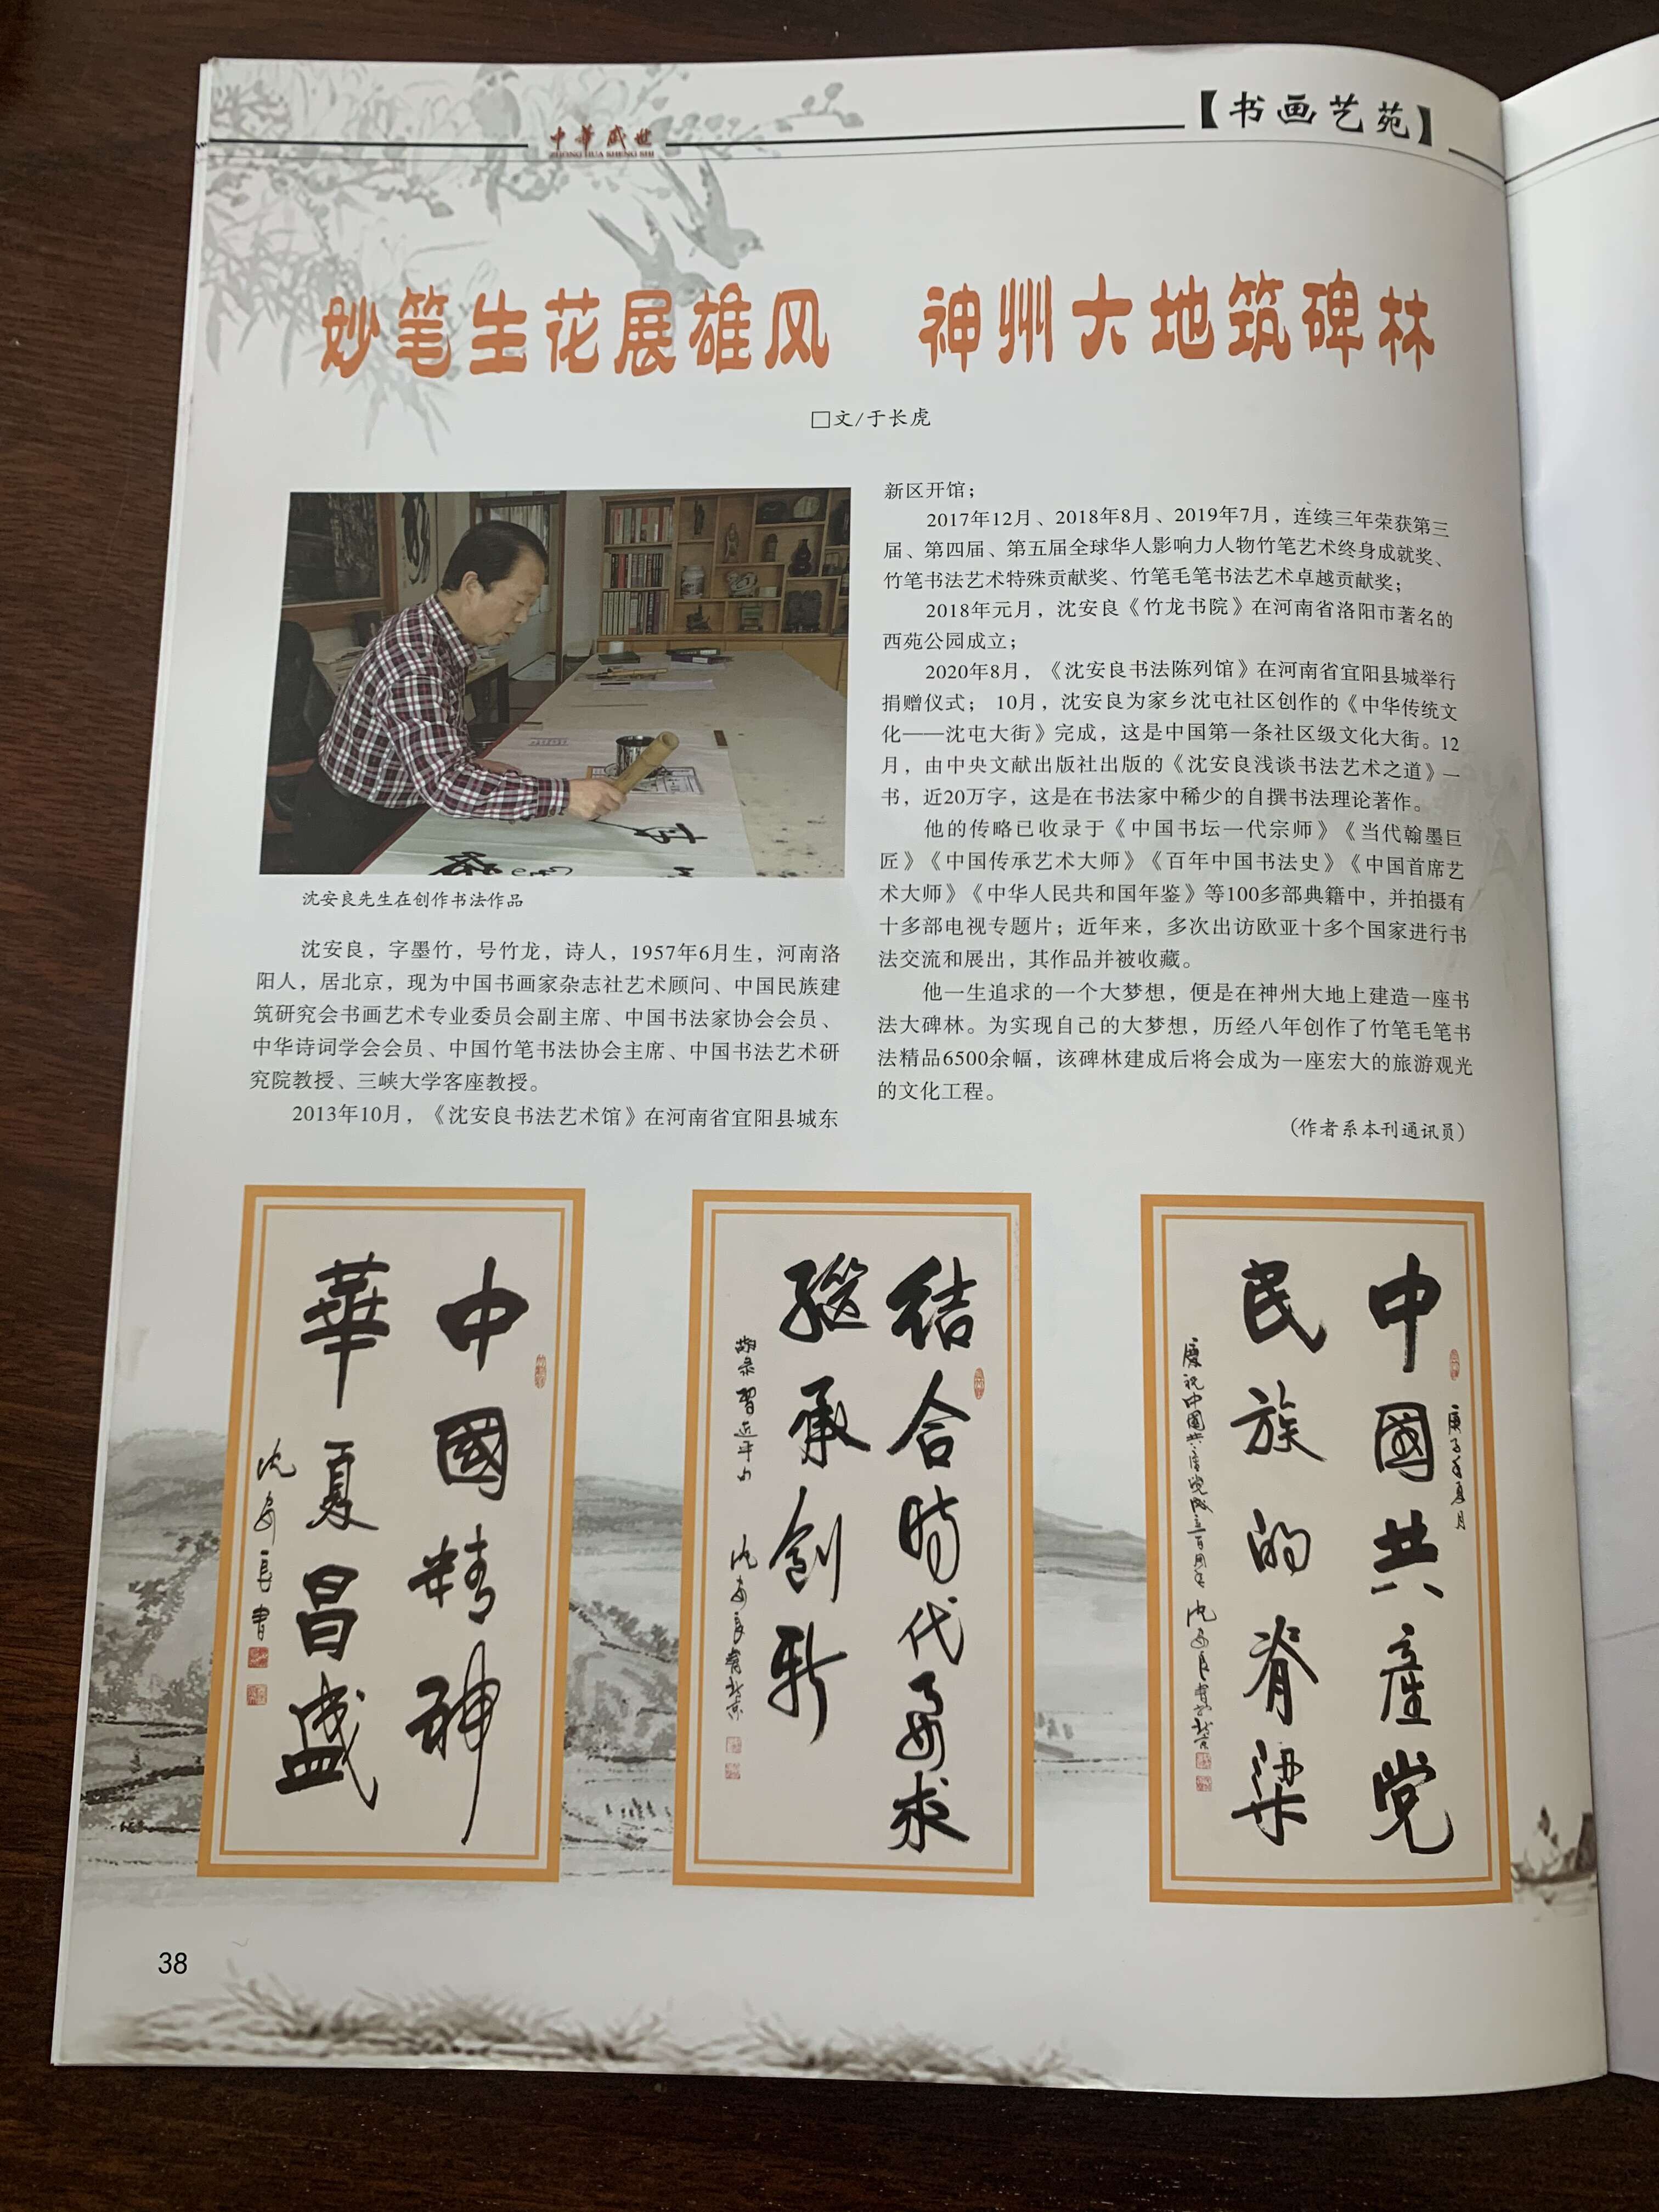 【书画艺苑】
中華盛世
ZHONG HUA SHENG SHI
妙笔生花展雄风 神州大地筑碑林
□文/于长虎
沈安良先生在创作书法作品
沈安良，字墨竹，号竹龙，诗人，1957年6月生，河南洛
阳人，居北京，现为中国书画家杂志社艺术顾问、中国民族建
筑研究会书画艺术专业委员会副主席、中国书法家协会会员、
中华诗词学会会员、中国竹笔书法协会主席、中国书法艺术研
究院教授、三峡大学客座教授。
2013年10月，《沈安良书法艺术馆》在河南省宜阳县城东
新区开馆；
2017年12月、2018年8月、2019年7月，连续三年荣获第三
届、第四届、第五届全球华人影响力人物竹笔艺术终身成就奖、
竹笔书法艺术特殊贡献奖、竹笔毛笔书法艺术卓越贡献奖；
2018年元月，沈安良《竹龙书院》在河南省洛阳市著名的
西苑公园成立；
2020年8月，《沈安良书法陈列馆》在河南省宜阳县城举行
捐赠仪式； 10月，沈安良为家乡沈屯社区创作的《中华传统文
化——沈屯大街》完成，这是中国第一条社区级文化大街。12
月，由中央文献出版社出版的《沈安良浅谈书法艺术之道》一
书，近20万字，这是在书法家中稀少的自撰书法理论著作。
他的传略已收录于《中国书坛一代宗师》《当代翰墨巨
匠》《中国传承艺术大师》《百年中国书法史》《中国首席艺
术大师》《中华人民共和国年鉴》等100多部典籍中，并拍摄有
十多部电视专题片；近年来，多次出访欧亚十多个国家进行书
法交流和展出，其作品并被收藏。
他一生追求的一个大梦想，便是在神州大地上建造一座书
法大碑林。为实现自己的大梦想，历经八年创作了竹笔毛笔书
法精品6500余幅，该碑林建成后将会成为一座宏大的旅游观光
的文化工程。
（作者系本刊通讯员）
中國精神
華夏昌盛
沈安良書
结合时代要求
继承创新
沈安良書於北京
庚子年夏月
中國共產党
民族的脊梁
慶祝中國共產党成立百周年 沈安良書於北京
38